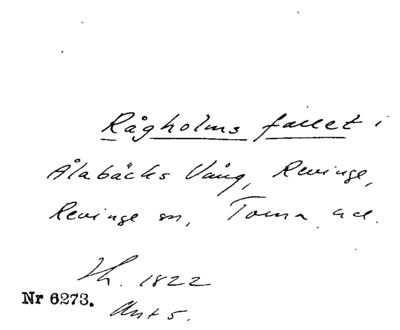 Rågholms fallet i
Ålabäcks Vång, Revinge,
Revinge sn, Torna hd.
Th. 1822
Nr 6273.
Akt 5.